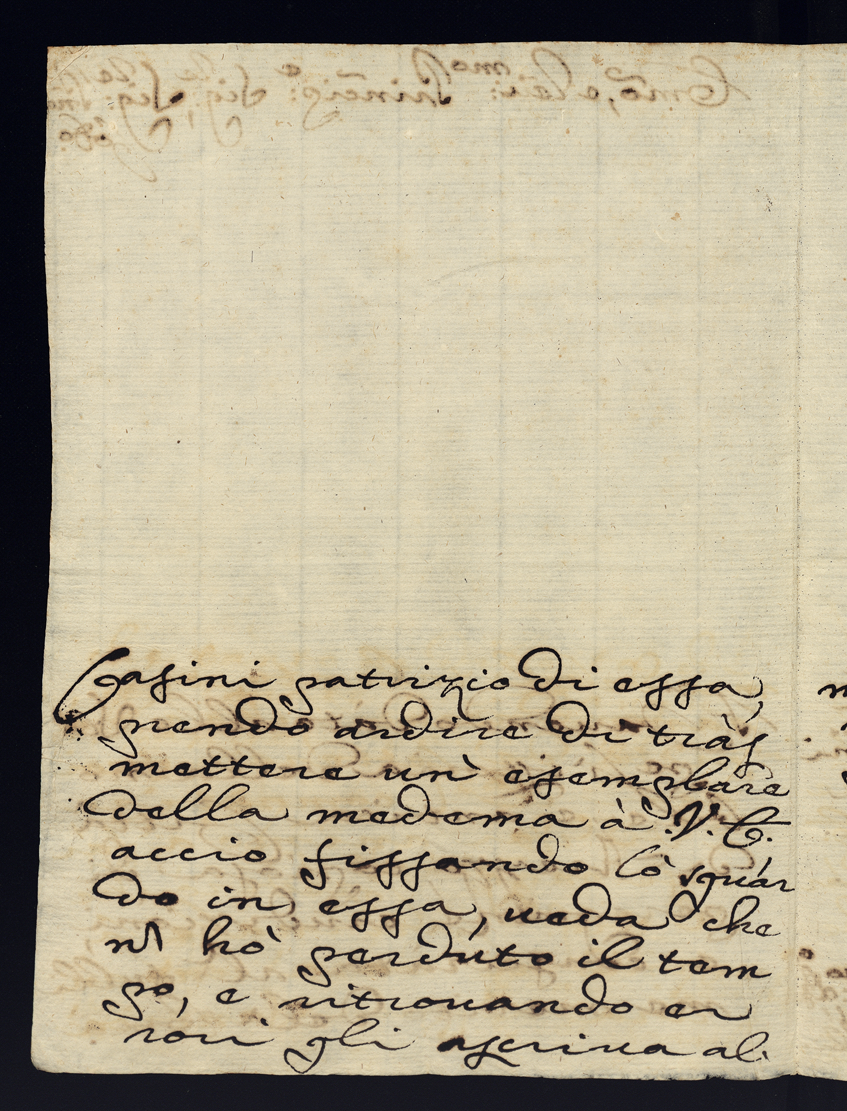 Casini patrizio di essa,
prendo ardire di tràs
mettere un' esemplare
della medema à V. E.
acciò fissando lo sguar
do in essa, ueda che
nõ hò perduto il tem
po, e ritrouando er
rori gli ascriua al